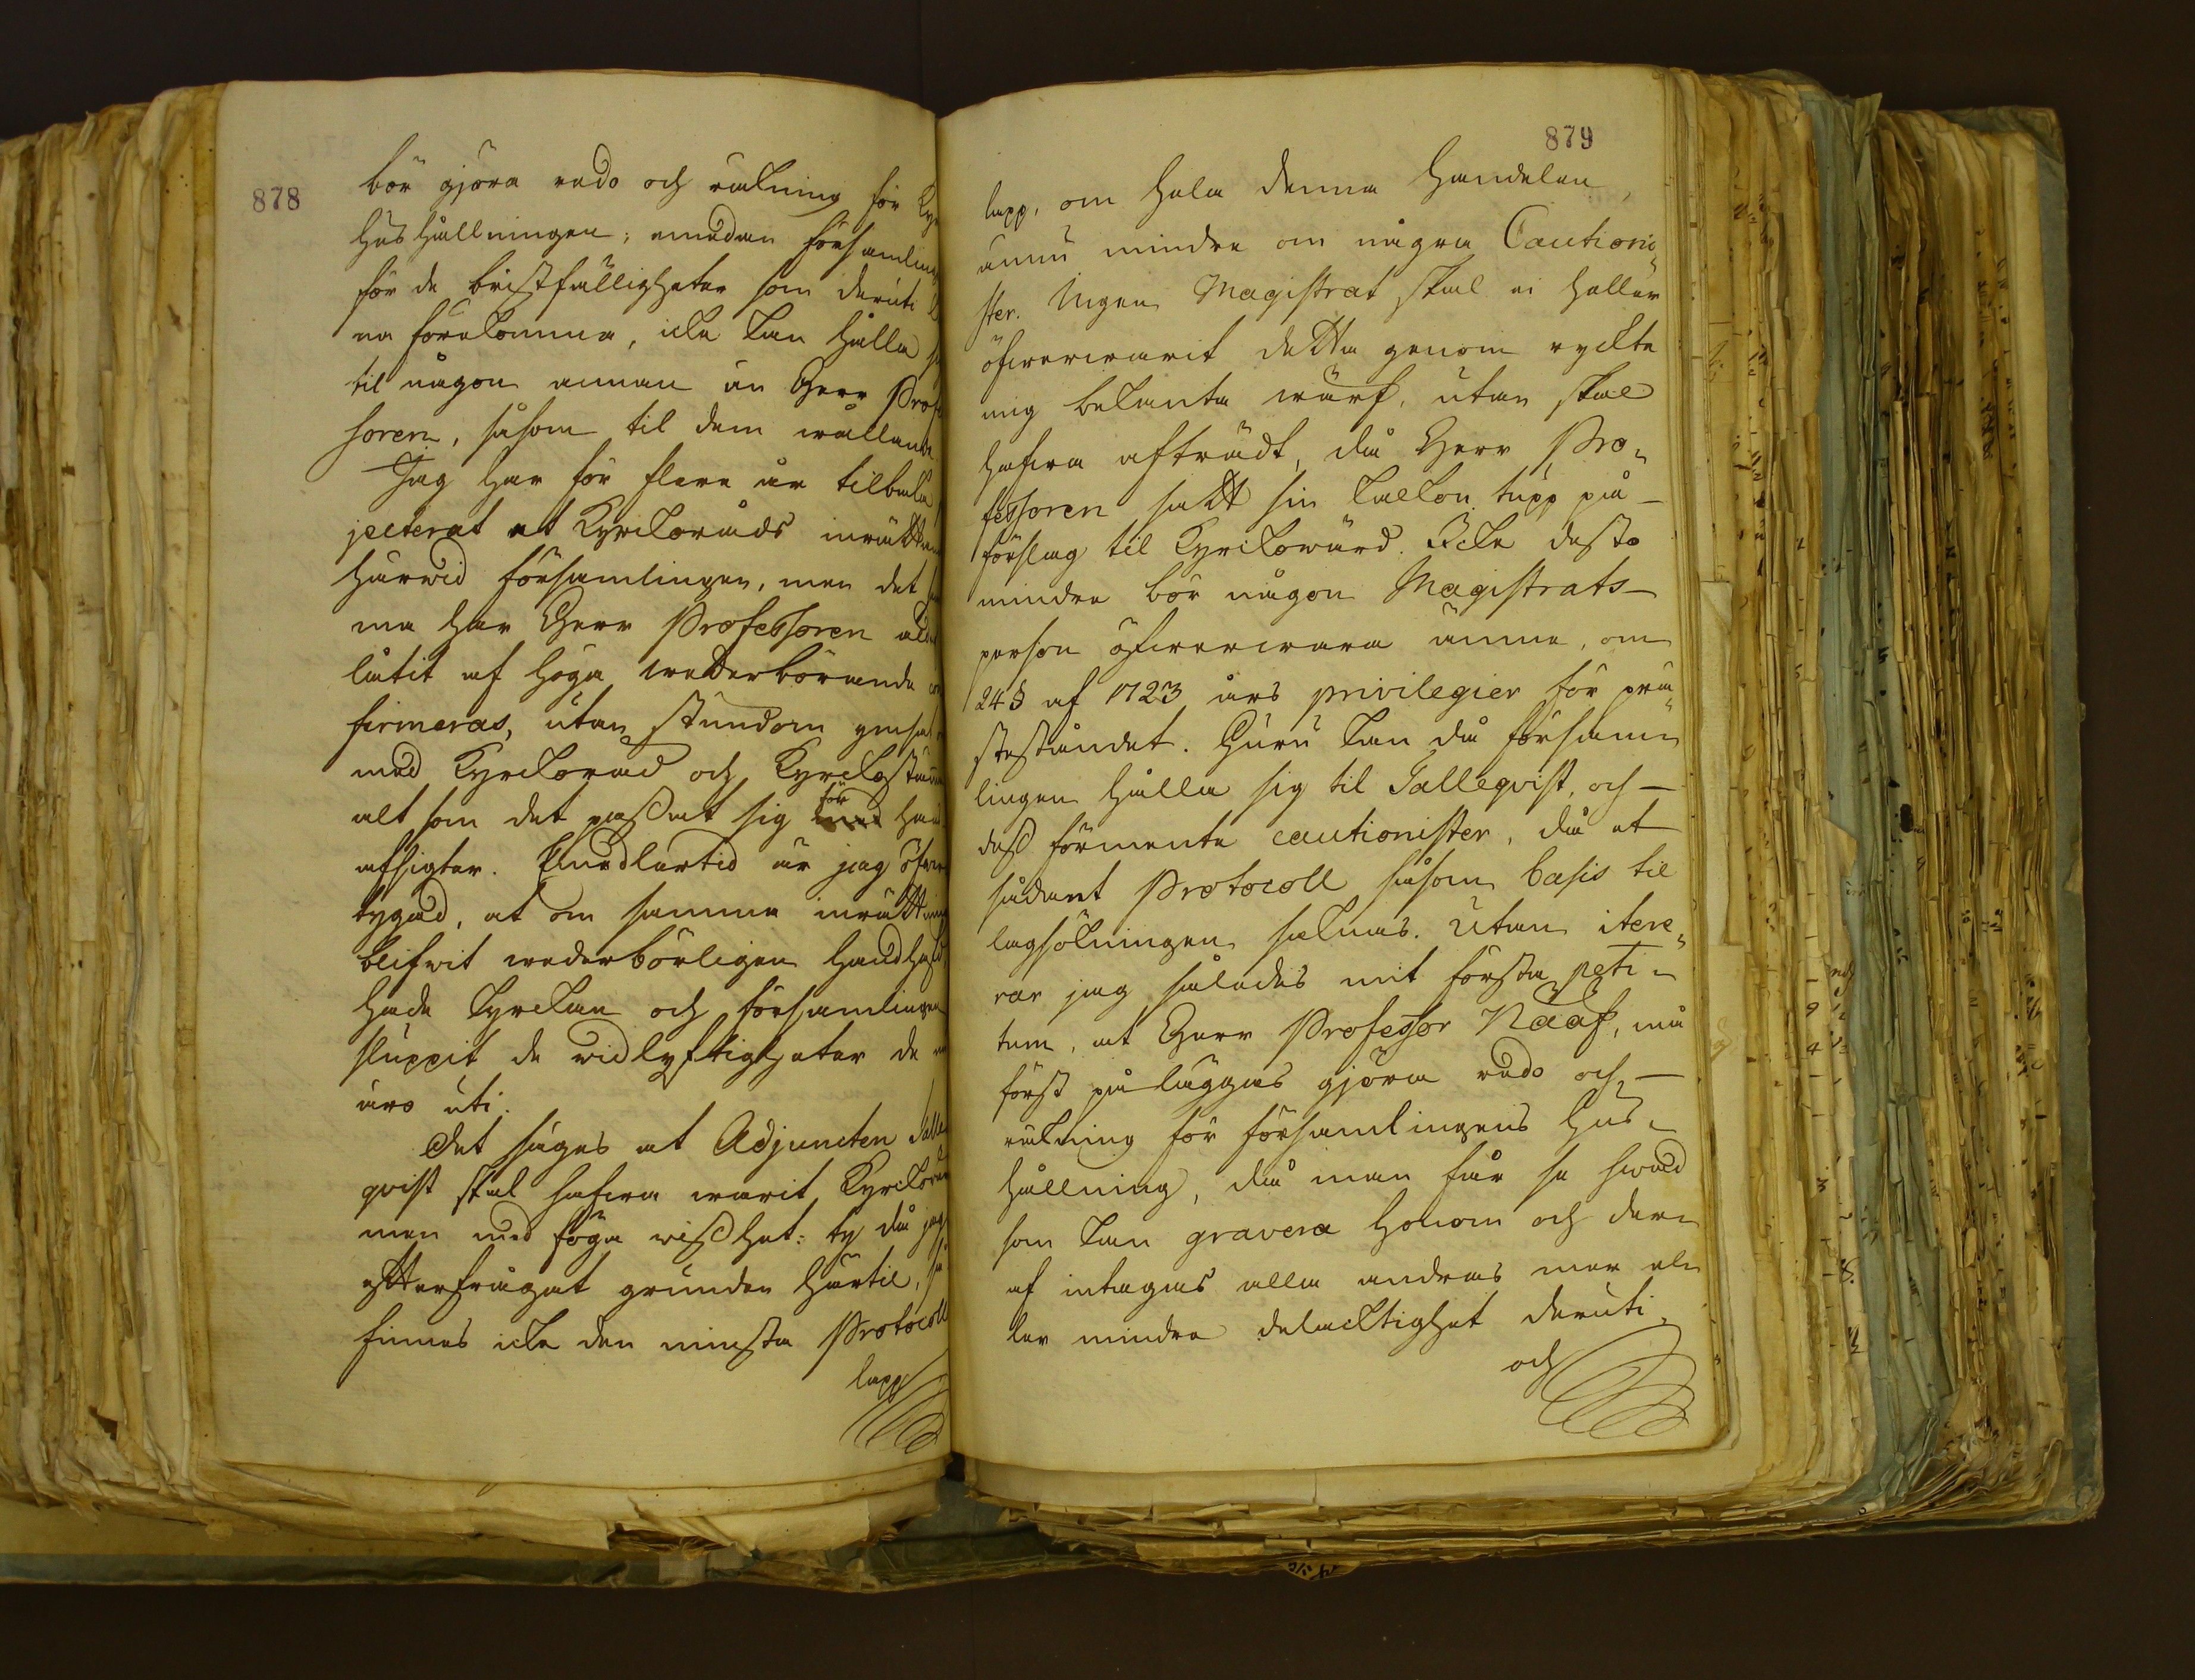 878
bör gjöra redo och räkning för Kyr
hushållningen; emedan församling
för de bristfälligheter som deruti
na förekomma, icke kan hålla
til någon annan än Herr Prof
soren, såsom til dem wållande.
Jag har för flere år tilbaka
jecterat at Kyrkoråds inrättan
härwid församlingen, men det
ma har Herr Professoren ald
låtit af höga wederbörande
firmeras, utan stundom
med Kyrkoråd och Kyrkostäm
alt som det passat sig för hans
afsigter. Emedlertid är jag öfwer
tygad, at om samma inrättning
blifwit wederbörligen handhafd,
hade kyrkan och församlingen
sluppit de widlyftigheter de
äro uti.
Det säges at Adjuncten Talle
qvist skal hafwa warit Kyrkowärd
men med föga wisshet: ty då jag
efterfrågat grunden härtil, så
finnes icke den minsta Protocoll
lapp
879
lapp, om hela denna handelen,
ännu mindre om några Cautioni-
ster. Ingen Magistrat skal ei heller
öfwerwarit detta genom ryckte
mig bekanta wärf, utan skal
hafwa afträdt, då Herr Pro-
fessoren satt sin kalkon tupp på
förslag til Kyrkowärd. Icke desto
mindre bör någon Magistrats-
person öfwerwara ämne, om
24 § af 1723 års privilegier för prä-
steståndet. Huru kan då försam-
lingen hålla sig til Talleqvist, och
dess förmente cautionister, då et
sådant Protocoll såsom basis til
lagsökningen saknas. Utan itere-
rar jag således mit första peti-
tum, at Herr Professor Nääf, må
först påläggas gjöra redo och
räkning för församlingens hus-
hållning, då man får se hwad
som kan gravera honom och der-
af intagas alla andras mer el-
ler mindre delacktighet deruti.
och